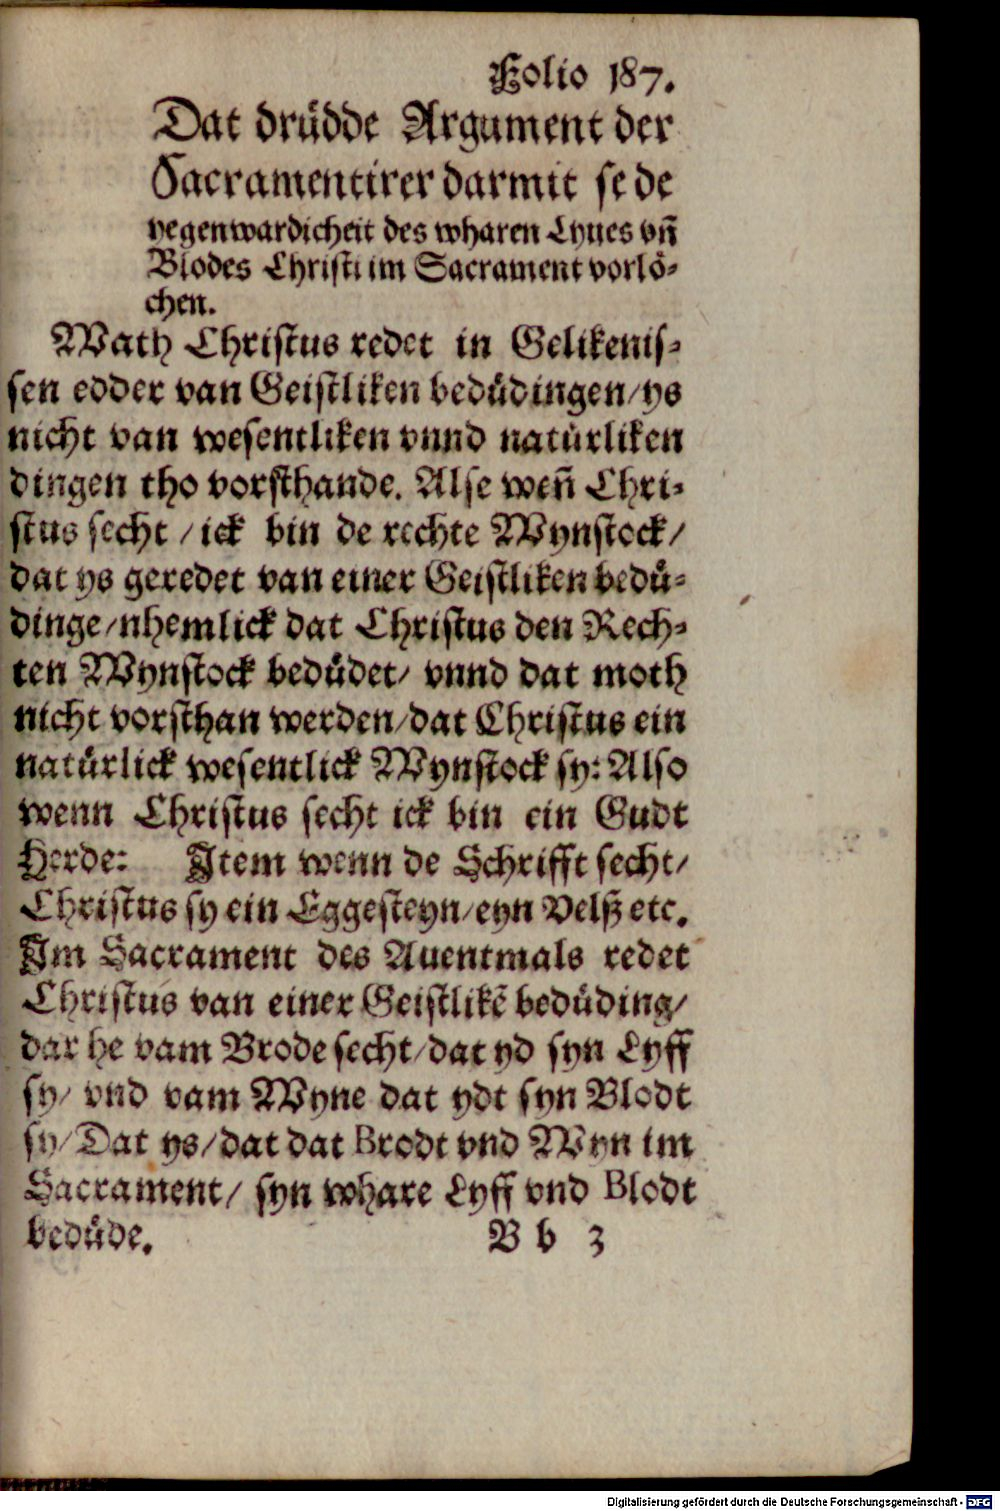 Folio 187.
Dat druͤdde Argument der
Sacramentirer darmit se de
yegenwardicheit des wharen Lyues vn̄
Blodes Christi im Sacrament vorloͤ-
chen.
Wath Christus redet in Gelikenis-
sen edder van Geistliken beduͤdingen/ys
nicht van wesentliken vnnd natuͤrliken
dingen tho vorsthande. Alse wen̄ Chri-
stus secht /ick bin de rechte Wynstock/
dat ys geredet van einer Geistliken beduͤ-
dinge/nhemlick dat Christus den Rech-
ten Wynstock beduͤdet/ vnnd dat moth
nicht vorsthan werden/dat Christus ein
natuͤrlick wesentlick Wynstock sy: Also
wenn Christus secht ick bin ein Gudt
Herde: Item wenn de Schrifft secht/
Christus sy ein Eggesteyn/eyn Velß etc.
Im Sacrament des Auentmals redet
Christus van einer Geistlikē beduͤding/
dar he vam Brode secht/dat yd syn Lyff
sy/ vnd vam Wyne dat ydt syn Blodt
sy/Dat ys/dat dat Brodt vnd Wyn im
Sacrament/ syn whare Lyff vnd Blodt
beduͤde. B b 3
Digitalisierung gefördert durch die Deutsche Forschungsgemeinschaft - DFG